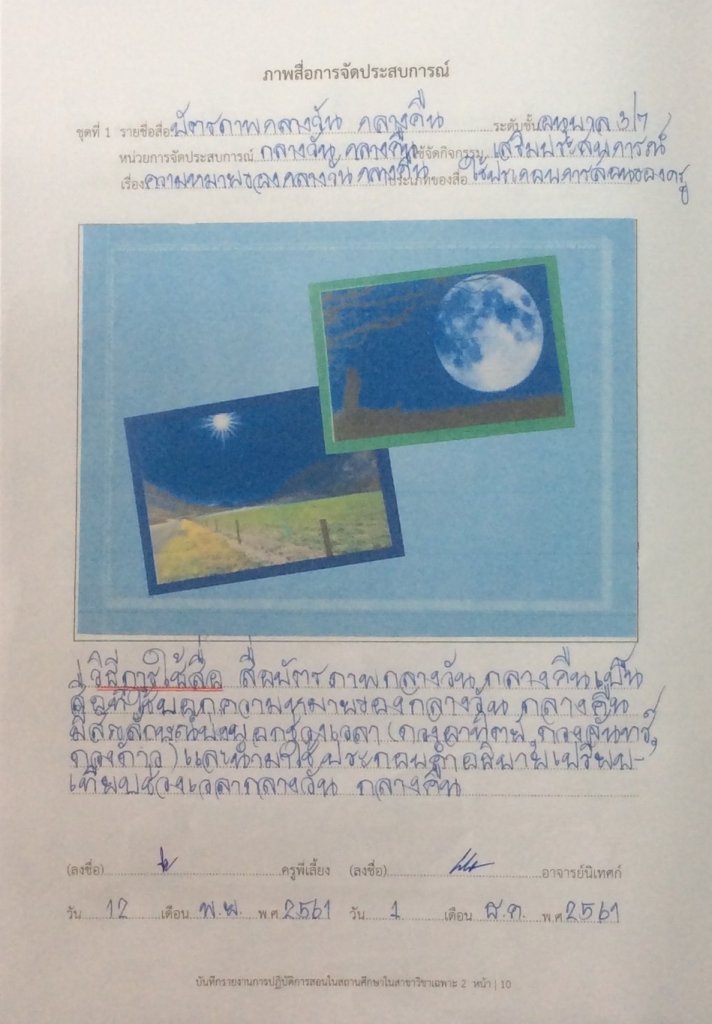 ภาพสื่อการจัดประสบการณ์
ชุดที่ 1 รายชื่อสื่อ บัตรภาพกลางวัน กลางคืน ระดับชั้น อนุบาล 3/7
หน่วยการจัดประสบการณ์ กลางวัน กลางคืน ใช้จัดกิจกรรม เสริมประสบการณ์
เรื่อง ความหมายของกลางวัน กลางคืน ประเภทของสื่อ ใช้ประกอบการสอนของครู
วิธีการใช้สื่อ สื่อบัตรภาพกลางวัน กลางคืน เป็น
สื่อที่ใช้บอกความหมายของกลางวัน กลางคืน
มีสัญลักษณ์บ่งบอกช่วงเวลา (ดวงอาทิตย์, ดวงจันทร์,
ดวงดาว) และนำมาใช้ประกอบคำอธิบายเปรียบ-
เทียบช่วงเวลากลางวัน กลางคืน
(ลงชื่อ) ครูพี่เลี้ยง (ลงชื่อ) อาจารย์นิเทศก์
วัน 12 เดือน พ.ย. พ.ศ 2561 วัน 1 เดือน ธ.ค. พ.ศ 2561
บันทึกรายงานการปฏิบัติการสอนในสถานศึกษาในสาขาวิชาเฉพาะ 2 หน้า | 10